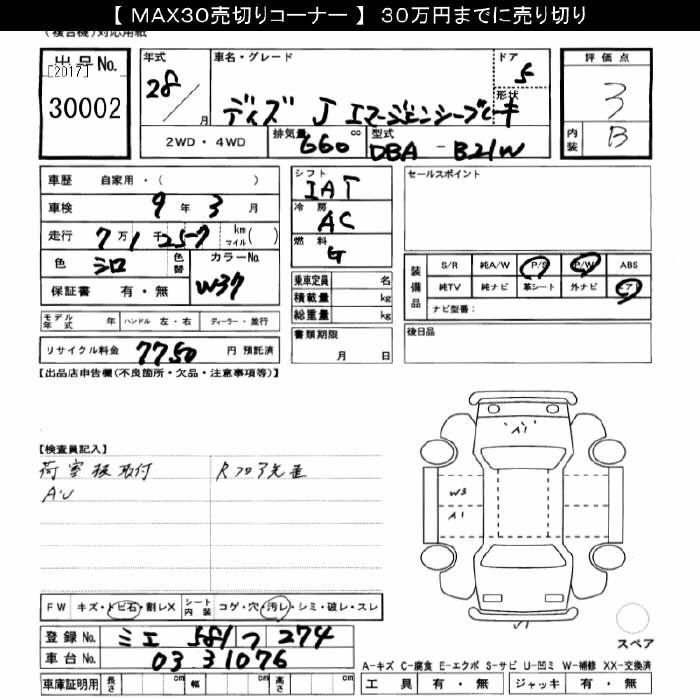 【 MAX30売切りコーナー 】 30万円までに売り切り
(複合機)対応用紙
出品No.
[2017]
30002
年式
28
月
車名・グレード
デイズ J エマージェンシーブレーキ
ドア
5
形状
2WD・4WD
排気量
660
cc
型式
DBA - B21W
評価点
3
内装
B
車歴 自家用・( )
車検 9 年 3 月
走行 7万1千257 km マイル( )
色 シロ 色替 カラーNo. W37
保証書 有・無
モデル年式 年 ハンドル 左・右 ディーラー・並行
リサイクル料金 7750 円 預託済
シフト
IAT
冷房
AC
燃料
G
乗車定員 名
積載量 kg
総重量 kg
書類期限
月 日
セールスポイント
装備品
S/R 純A/W P/S P/W ABS
純TV 純ナビ 革シート 外ナビ エアB
ナビ型番:
後日品
【出品店申告欄(不良箇所・欠品・注意事項等)】
【検査員記入】
荷室板取付
AU
A1
W3
A1
FW キズ・トビ石・割レX シート内装 コゲ・穴・汚レ・シミ・破レ・スレ
登録No. ミエ 581 つ 274
車台No. 0331076
車庫証明用 長さ cm 幅 cm 高さ cm
スペア
A-キズ C-腐食 E-エクボ S-サビ U-凹ミ W-補修 XX-交換済
工具 有・無 ジャッキ 有・無